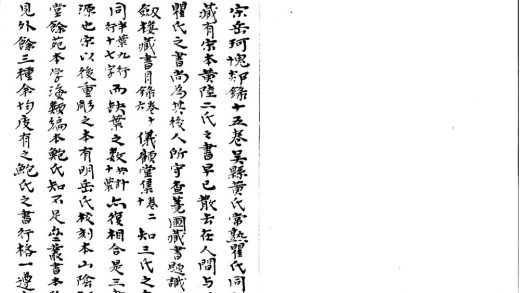 宋岳珂愧郯錄十五卷吳縣黃氏常熟瞿氏同
藏有宋本黃陸二氏之書早已散去在人間与
瞿氏之書尚為其後人所守查蕘圃藏書題識
劔樓藏書目錄卷十六儀顧堂集卷二十知三氏之
同半葉九行行十七字而缺葉之數共計十葉亦復相合是三
源也宋以後重彫之本有明岳氏校刻本山陰
堂餘苑本学海類編本鮑氏知不足齋叢書本
見外餘三種余均度有之鮑氏之書行格一遵